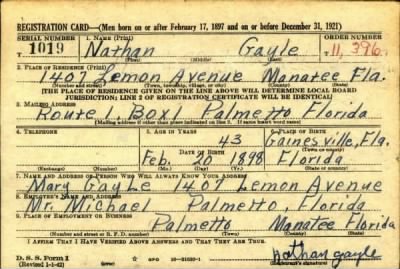 REGISTRATION CARD—(Men born on or after February 17, 1897 and on or before December 31, 1921)
SERIAL NUMBER 1. NAME (Print) ORDER NUMBER
1019 Nathan Gayle 11,396
(First) (Middle) (Last)
2. PLACE OF RESIDENCE (Print)
1407 Lemon Avenue Manatee Fla.
(Number and street) (Town, township, village, or city) (County) (State)
[THE PLACE OF RESIDENCE GIVEN ON THE LINE ABOVE WILL DETERMINE LOCAL BOARD
JURISDICTION; LINE 2 OF REGISTRATION CERTIFICATE WILL BE IDENTICAL]
3. MAILING ADDRESS
Route 1 Box Palmetto Florida
[Mailing address if other than place indicated on line 2. If same insert word same]
4. TELEPHONE 5. AGE IN YEARS 6. PLACE OF BIRTH
43 Gainesville, Fla.
DATE OF BIRTH (Town or county)
Feb. 20 1898 Florida
(Exchange) (Number) (Mo.) (Day) (Yr.) (State or country)
7. NAME AND ADDRESS OF PERSON WHO WILL ALWAYS KNOW YOUR ADDRESS
Mary Gayle 1407 Lemon Avenue
8. EMPLOYER'S NAME AND ADDRESS
Mr. Michael Palmetto, Florida
9. PLACE OF EMPLOYMENT OR BUSINESS
Palmetto Manatee Florida
(Number and street or R. F. D. number) (Town) (County) (State)
I AFFIRM THAT I HAVE VERIFIED ABOVE ANSWERS AND THAT THEY ARE TRUE.
D. S. S. Form 1
(Revised 1-1-42) GPO nathan gayle
(Registrant's signature)